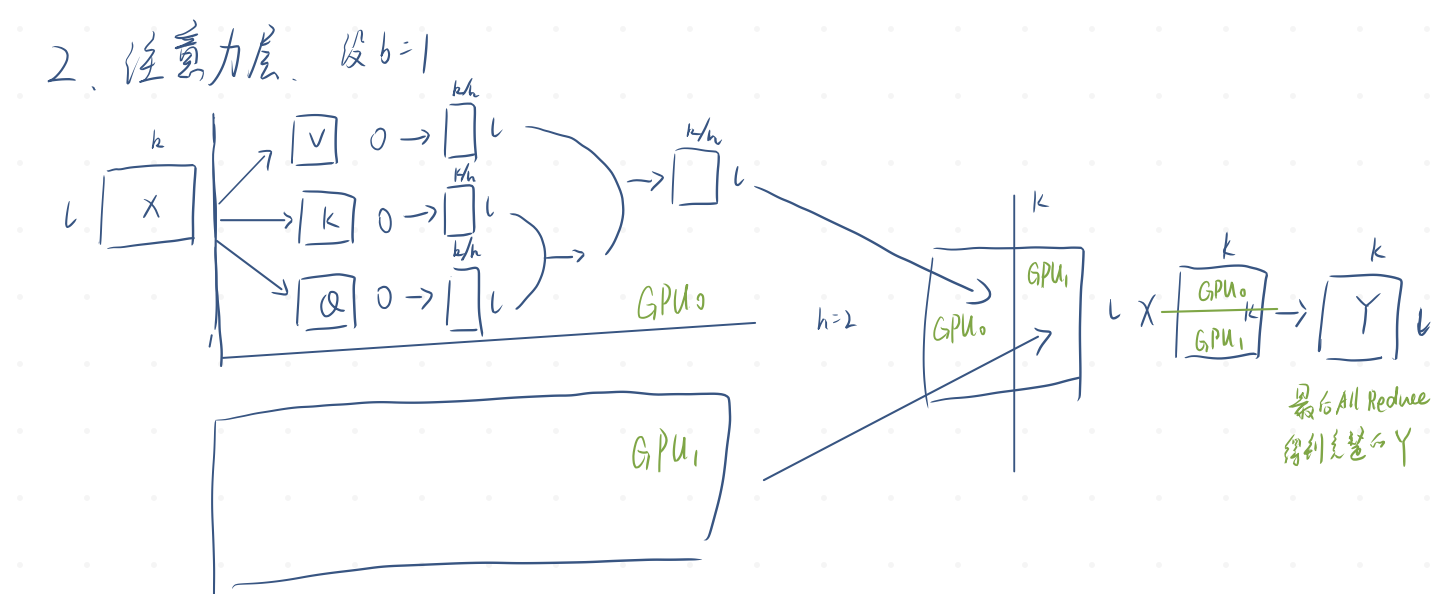 2、注意力层. 设b=1
k
l
X
V
0
k/h
l
K
0
k/h
l
Q
0
k/h
l
k/h
l
GPU0
GPU1
h=2
k
GPU0
GPU1
l
X
k
GPU0
k
GPU1
k
Y
l
最后All Reduce
得到完整的Y